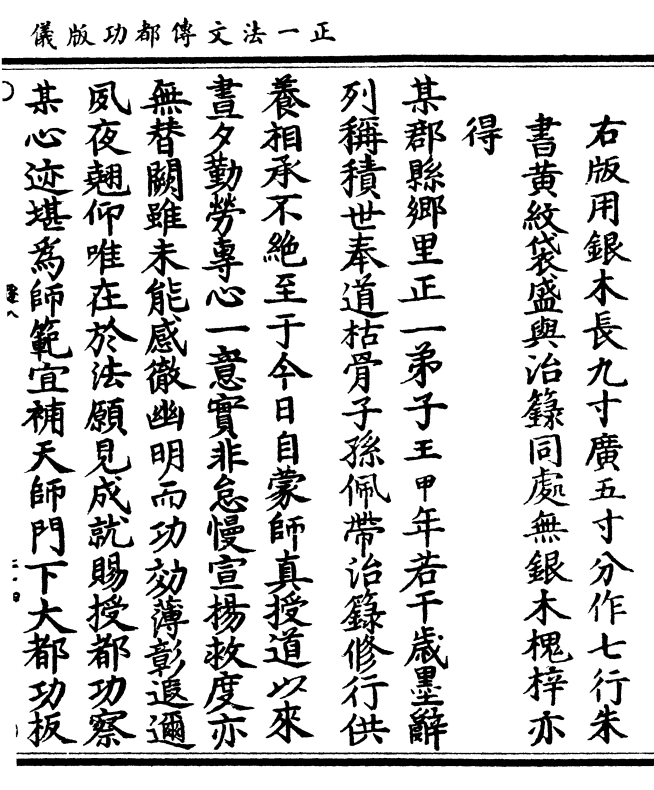 正一法文傳都功版儀
右版用銀木長九寸廣五寸分作七行朱
書黃紋袋盛與治籙同處無銀木槐梓亦
得
某郡縣鄉里正一弟子王甲年若干歲墨辭
列稱積世奉道枯骨子孫佩帶治籙修行供
養相承不絕至于今日自蒙師真授道以來
晝夕勤勞專心一意實非怠慢宣揚救度亦
無替闕雖未能感徹幽明而功効薄彰遐邇
夙夜翹仰唯在於法願見成就賜授都功察
某心迹堪爲師範宜補天師門下大都功板